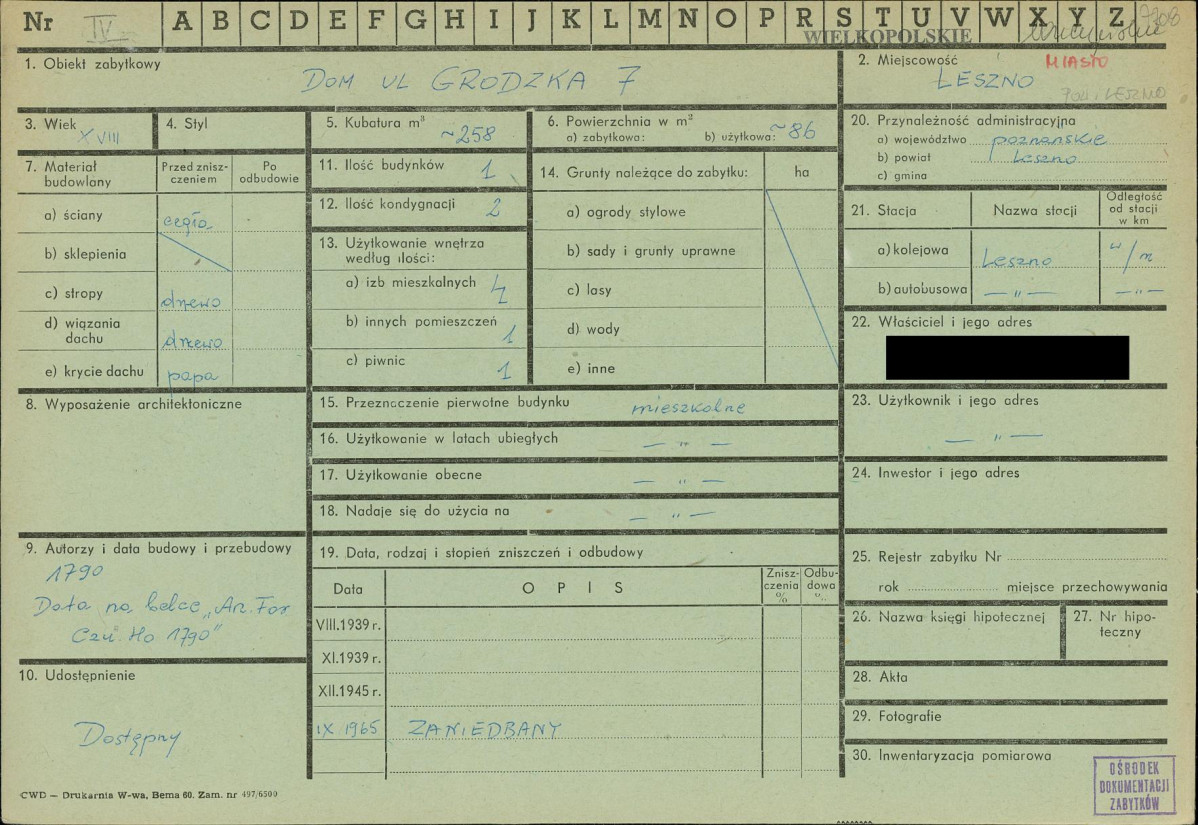 Nr IV A B C D E F G H I J K L M N O P R S T U V W X Y Z
WIELKOPOLSKIE
1. Obiekt zabytkowy
DOM UL GRODZKA 7
2. Miejscowość MIASTO
LESZNO
POW. LESZNO
3. Wiek
XVIII
4. Styl
5. Kubatura m³
~258
6. Powierzchnia w m²
a) zabytkowa: b) użytkowa: ~86
20. Przynależność administracyjna
a) województwo poznańskie
b) powiat Leszno
c) gmina
7. Materiał budowlany
Przed znisz-
czeniem
Po
odbudowie
a) ściany cegła
b) sklepienia
c) stropy drzewo
d) wiązania
dachu drzewo
e) krycie dachu papa
11. Ilość budynków 1
12. Ilość kondygnacji 2
13. Użytkowanie wnętrza
według ilości:
a) izb mieszkalnych 4
b) innych pomieszczeń 1
c) piwnic 1
14. Grunty należące do zabytku: ha
a) ogrody stylowe
b) sady i grunty uprawne
c) lasy
d) wody
e) inne
21. Stacja Nazwa stacji
Odległość
od stacji
w km
a) kolejowa Leszno w/m
b) autobusowa — „ — — „ —
22. Właściciel i jego adres
8. Wyposażenie architektoniczne
15. Przeznaczenie pierwotne budynku mieszkalne
16. Użytkowanie w latach ubiegłych — „ —
17. Użytkowanie obecne — „ —
18. Nadaje się do użycia na — „ —
23. Użytkownik i jego adres
— „ —
24. Inwestor i jego adres
9. Autorzy i data budowy i przebudowy
1790
Data na belce „An. For
Czu. Ho 1790"
10. Udostępnienie
Dostępny
19. Data, rodzaj i stopień zniszczeń i odbudowy
Data OPIS
Znisz-
czenia
%
Odbu-
dowa
%
VIII.1939 r.
XI.1939 r.
XII.1945 r.
IX 1965 ZANIEDBANY
25. Rejestr zabytku Nr
rok miejsce przechowywania
26. Nazwa księgi hipotecznej
27. Nr hipo-
teczny
28. Akta
29. Fotografie
30. Inwentaryzacja pomiarowa
OŚRODEK
DOKUMENTACJI
ZABYTKÓW
CWD — Drukarnia W-wa, Bema 60. Zam. nr 497/6500